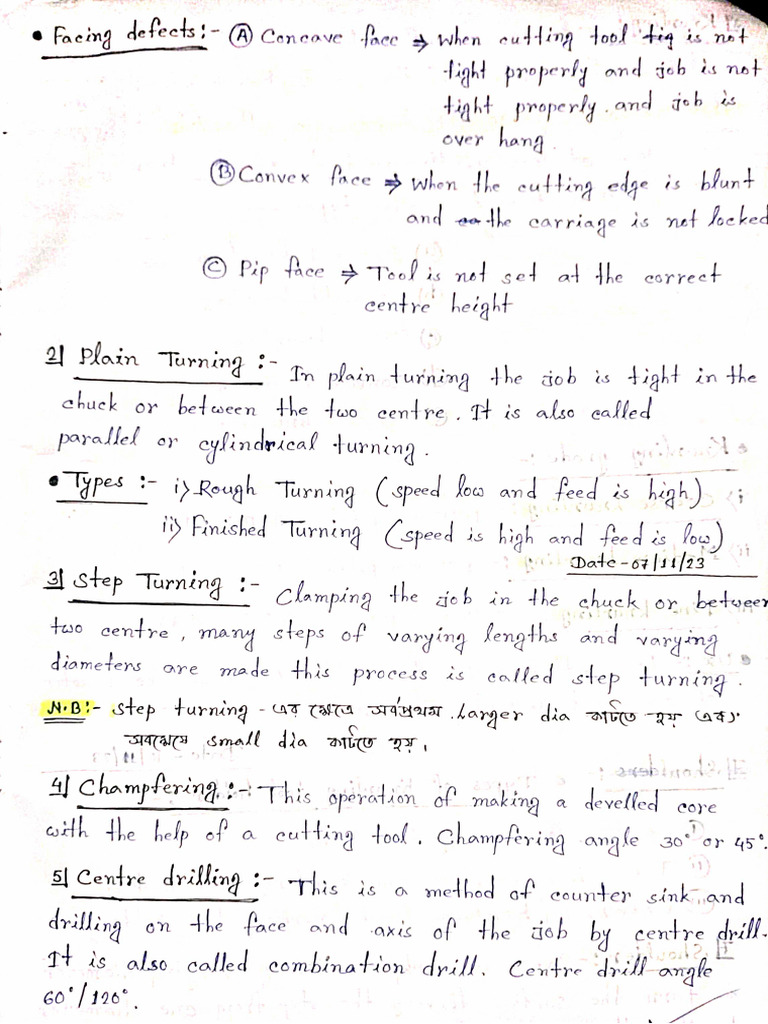 • Facing defects:- Ⓐ Concave face ⇒ When cutting tool tig is not
tight properly and job is not
tight properly. and job is
over hang.
Ⓑ Convex face ⇒ When the cutting edge is blunt
and the carriage is not locked
Ⓒ Pip face ⇒ Tool is not set at the correct
centre height
2) Plain Turning :- In plain turning the job is tight in the
chuck or between the two centre. It is also called
parallel or cylindrical turning.
• Types :- i) Rough Turning (speed low and feed is high)
ii) Finished Turning (speed is high and feed is low)
Date - 07/11/23
3) Step Turning :- Clamping the job in the chuck or between
two centre, many steps of varying lengths and varying
diameters are made this process is called step turning.
N.B:- Step turning - এর ক্ষেত্রে সর্বপ্রথম Larger dia কাটতে হয় এবং
অবশেষে small dia কাটতে হয়।
4) Champfering :- This operation of making a develled core
with the help of a cutting tool. Champfering angle 30° or 45°.
5) Centre drilling :- This is a method of counter sink and
drilling on the face and axis of the job by centre drill.
It is also called combination drill. Centre drill angle
60°/120°.